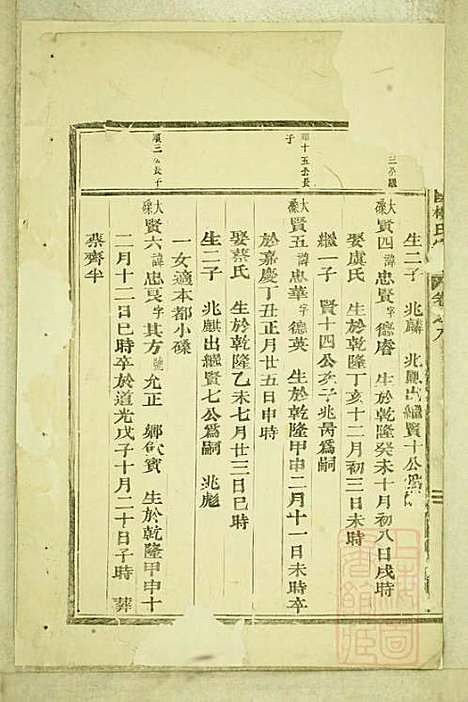 生二子 兆麟 兆鳳出繼賢十公為
三公繼
大樑賢四諱忠賢字德睿 生於乾隆癸未十月初八日戌時
娶虞氏 生於乾隆丁亥十二月初三日未時
繼一子 賢十四公次子兆昺為嗣
順十五公長子
大樑賢五諱忠華字德英 生於乾隆甲申二月十一日未時卒
於嘉慶丁丑正月廿五日申時
娶蔡氏 生於乾隆乙未七月廿三日巳時
生二子 兆麒出繼賢七公為嗣 兆彪
一女適本都小磉
順三公長子
大樑賢六諱忠 字其方號允正 鄉飲賓 生於乾隆甲申十
二月十二日巳時卒於道光戊子十月二十日子時 葬
蔡齊半